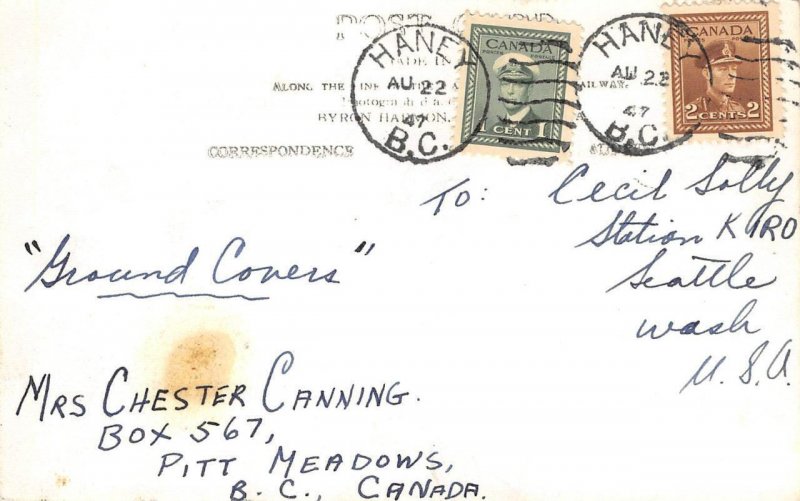 POST
HANEY
AU 22
47
B.C.
CANADA
POSTES POSTAGE
1 CENT 1
HANEY
AU 22
47
B.C.
CANADA
2 CENTS 2
MADE IN
ALONG THE LINE RAILWAY.
BYRON HARMON,
CORRESPONDENCE
To: Cecil Solly
Station KIRO
Seattle
Wash
U.S.A.
"Ground Covers"
MRS CHESTER CANNING.
BOX 567,
PITT MEADOWS,
B.C., CANADA.